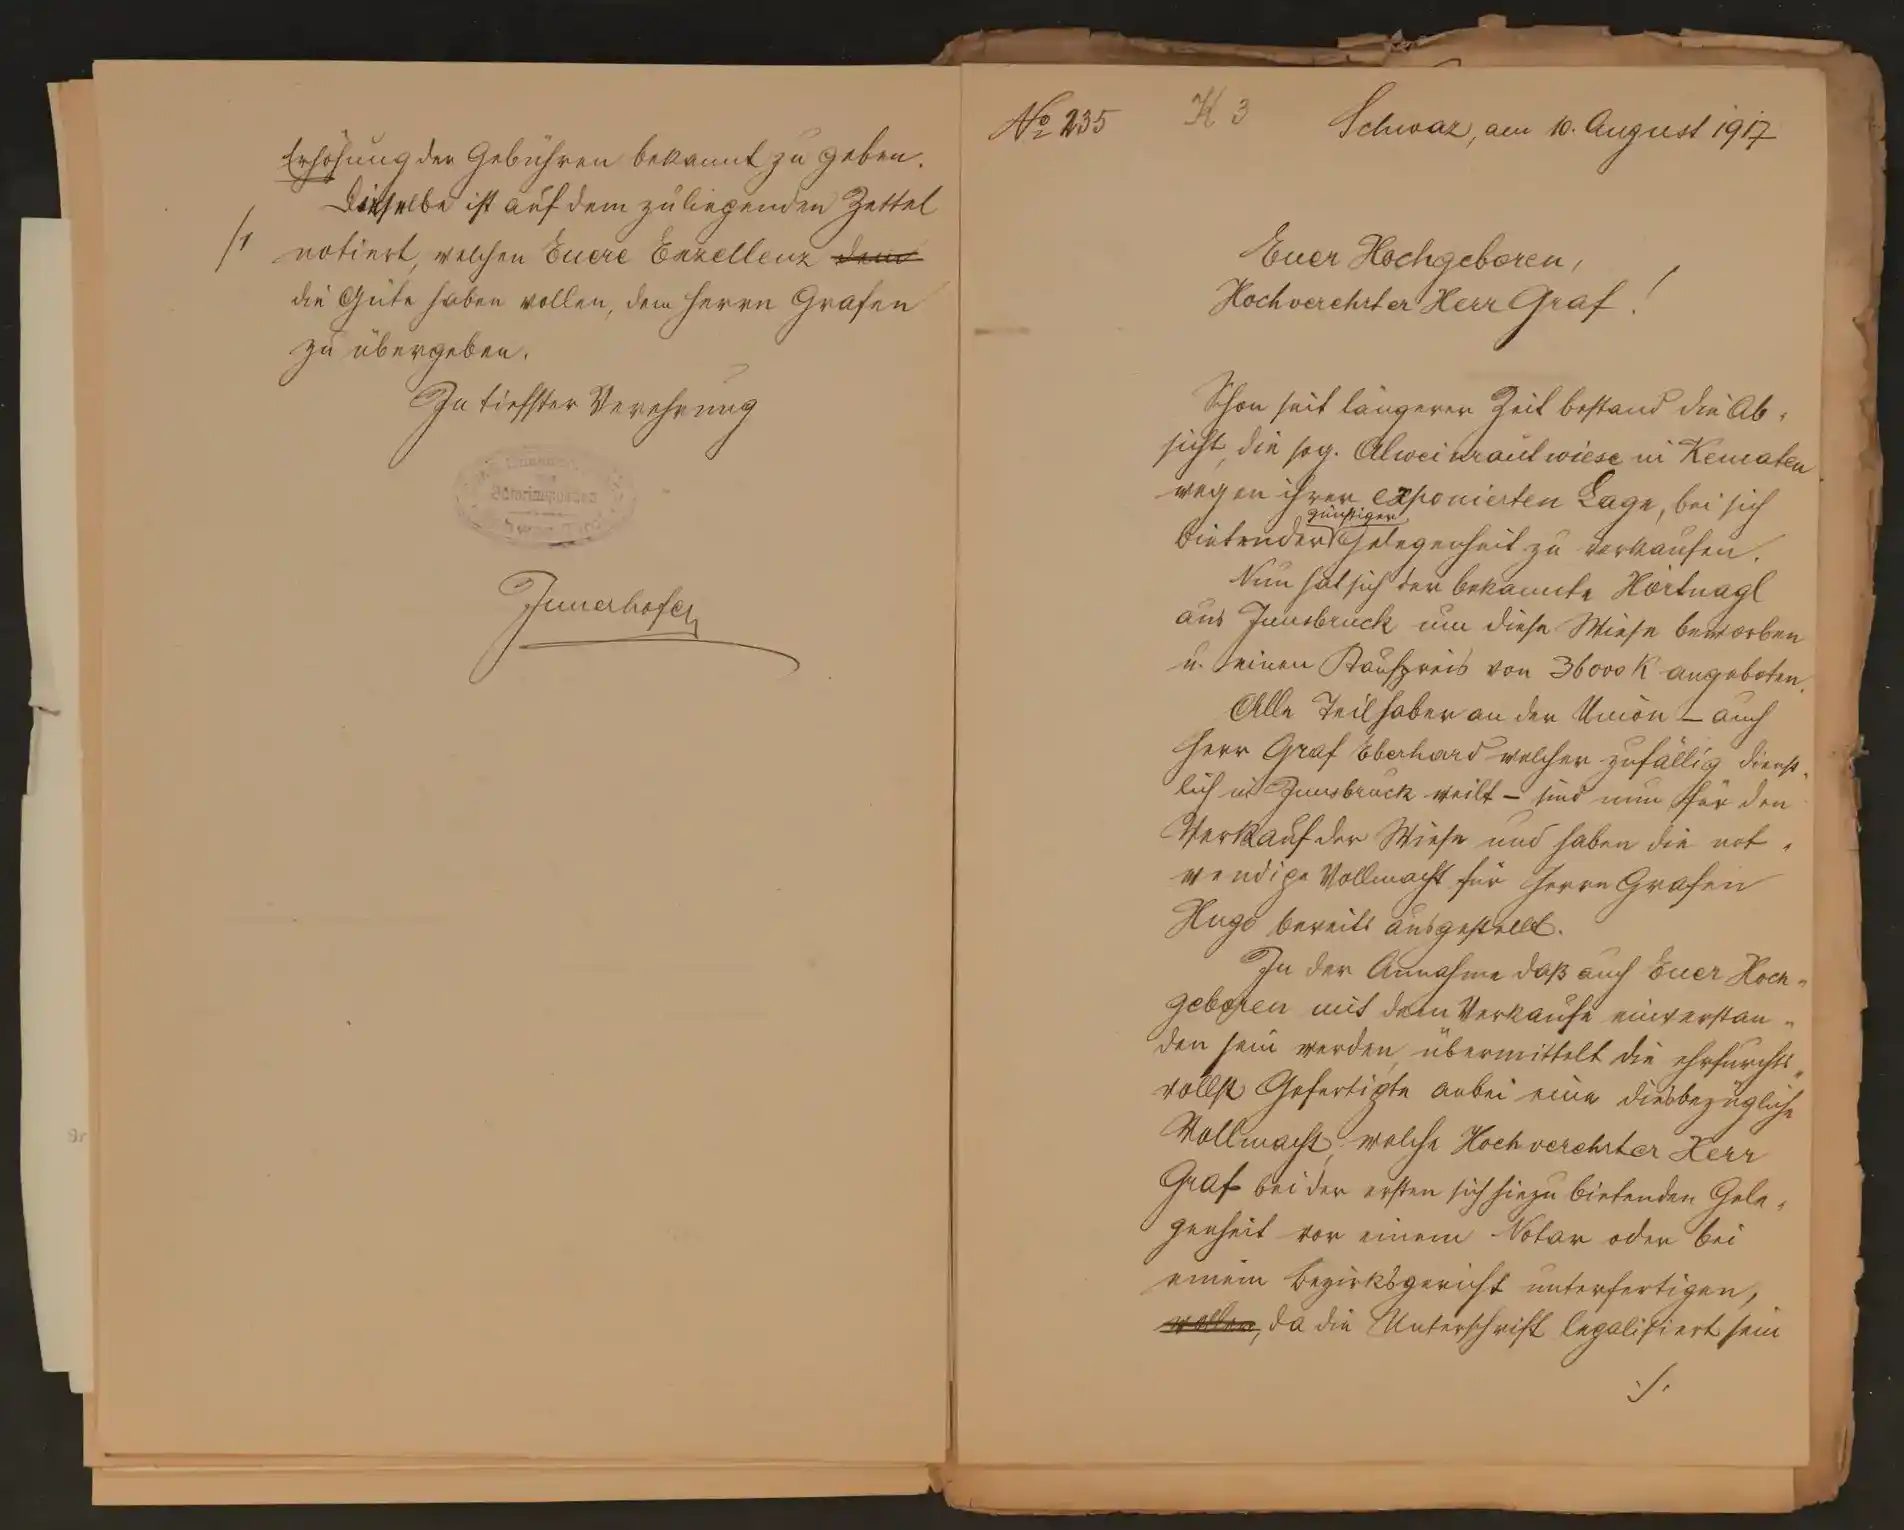 Erhöhung der Gebühren bekannt zu geben.
Dieselbe ist auf dem zuliegenden Zettel
/1 notiert, welchen Euere Exzellenz dem
die Güte haben wollen, dem Herrn Grafen
zu übergeben.
In tiefster Verehrung
Innerhofer
No 235 K 3 Schwaz, am 10. August 1917
Euer Hochgeboren,
Hochverehrter Herr Graf!
Schon seit längerer Zeit bestand die Ab-
sicht, die sog. Alweinrautwiese in Kematen
wegen ihrer exponierten Lage, bei sich
günstiger
bietender Gelegenheit zu verkaufen.
Nun hat sich der bekannte Hörtnagl
aus Innsbruck um diese Wiese beworben
u. einen Kaufpreis von 36000 K angeboten.
Alle Teilhaber an der Union – auch
Herr Graf Eberhard welcher zufällig dienst-
lich in Innsbruck weilt – sind nun für den
Verkauf der Wiese und haben die not-
wendige Vollmacht für Herrn Grafen
Hugo bereits ausgestellt.
In der Annahme daß auch Euer Hoch-
geboren mit dem Verkaufe einverstan-
den sein werden, übermittelt die ehrfurchts-
vollst Gefertigte anbei eine diesbezügliche
Vollmacht, welche Hochverehrter Herr
Graf bei der ersten sich hiezu bietenden Gele-
genheit vor einem Notar oder bei
einem Bezirksgericht unterfertigen,
wollen, da die Unterschrift legalisiert sein
./.